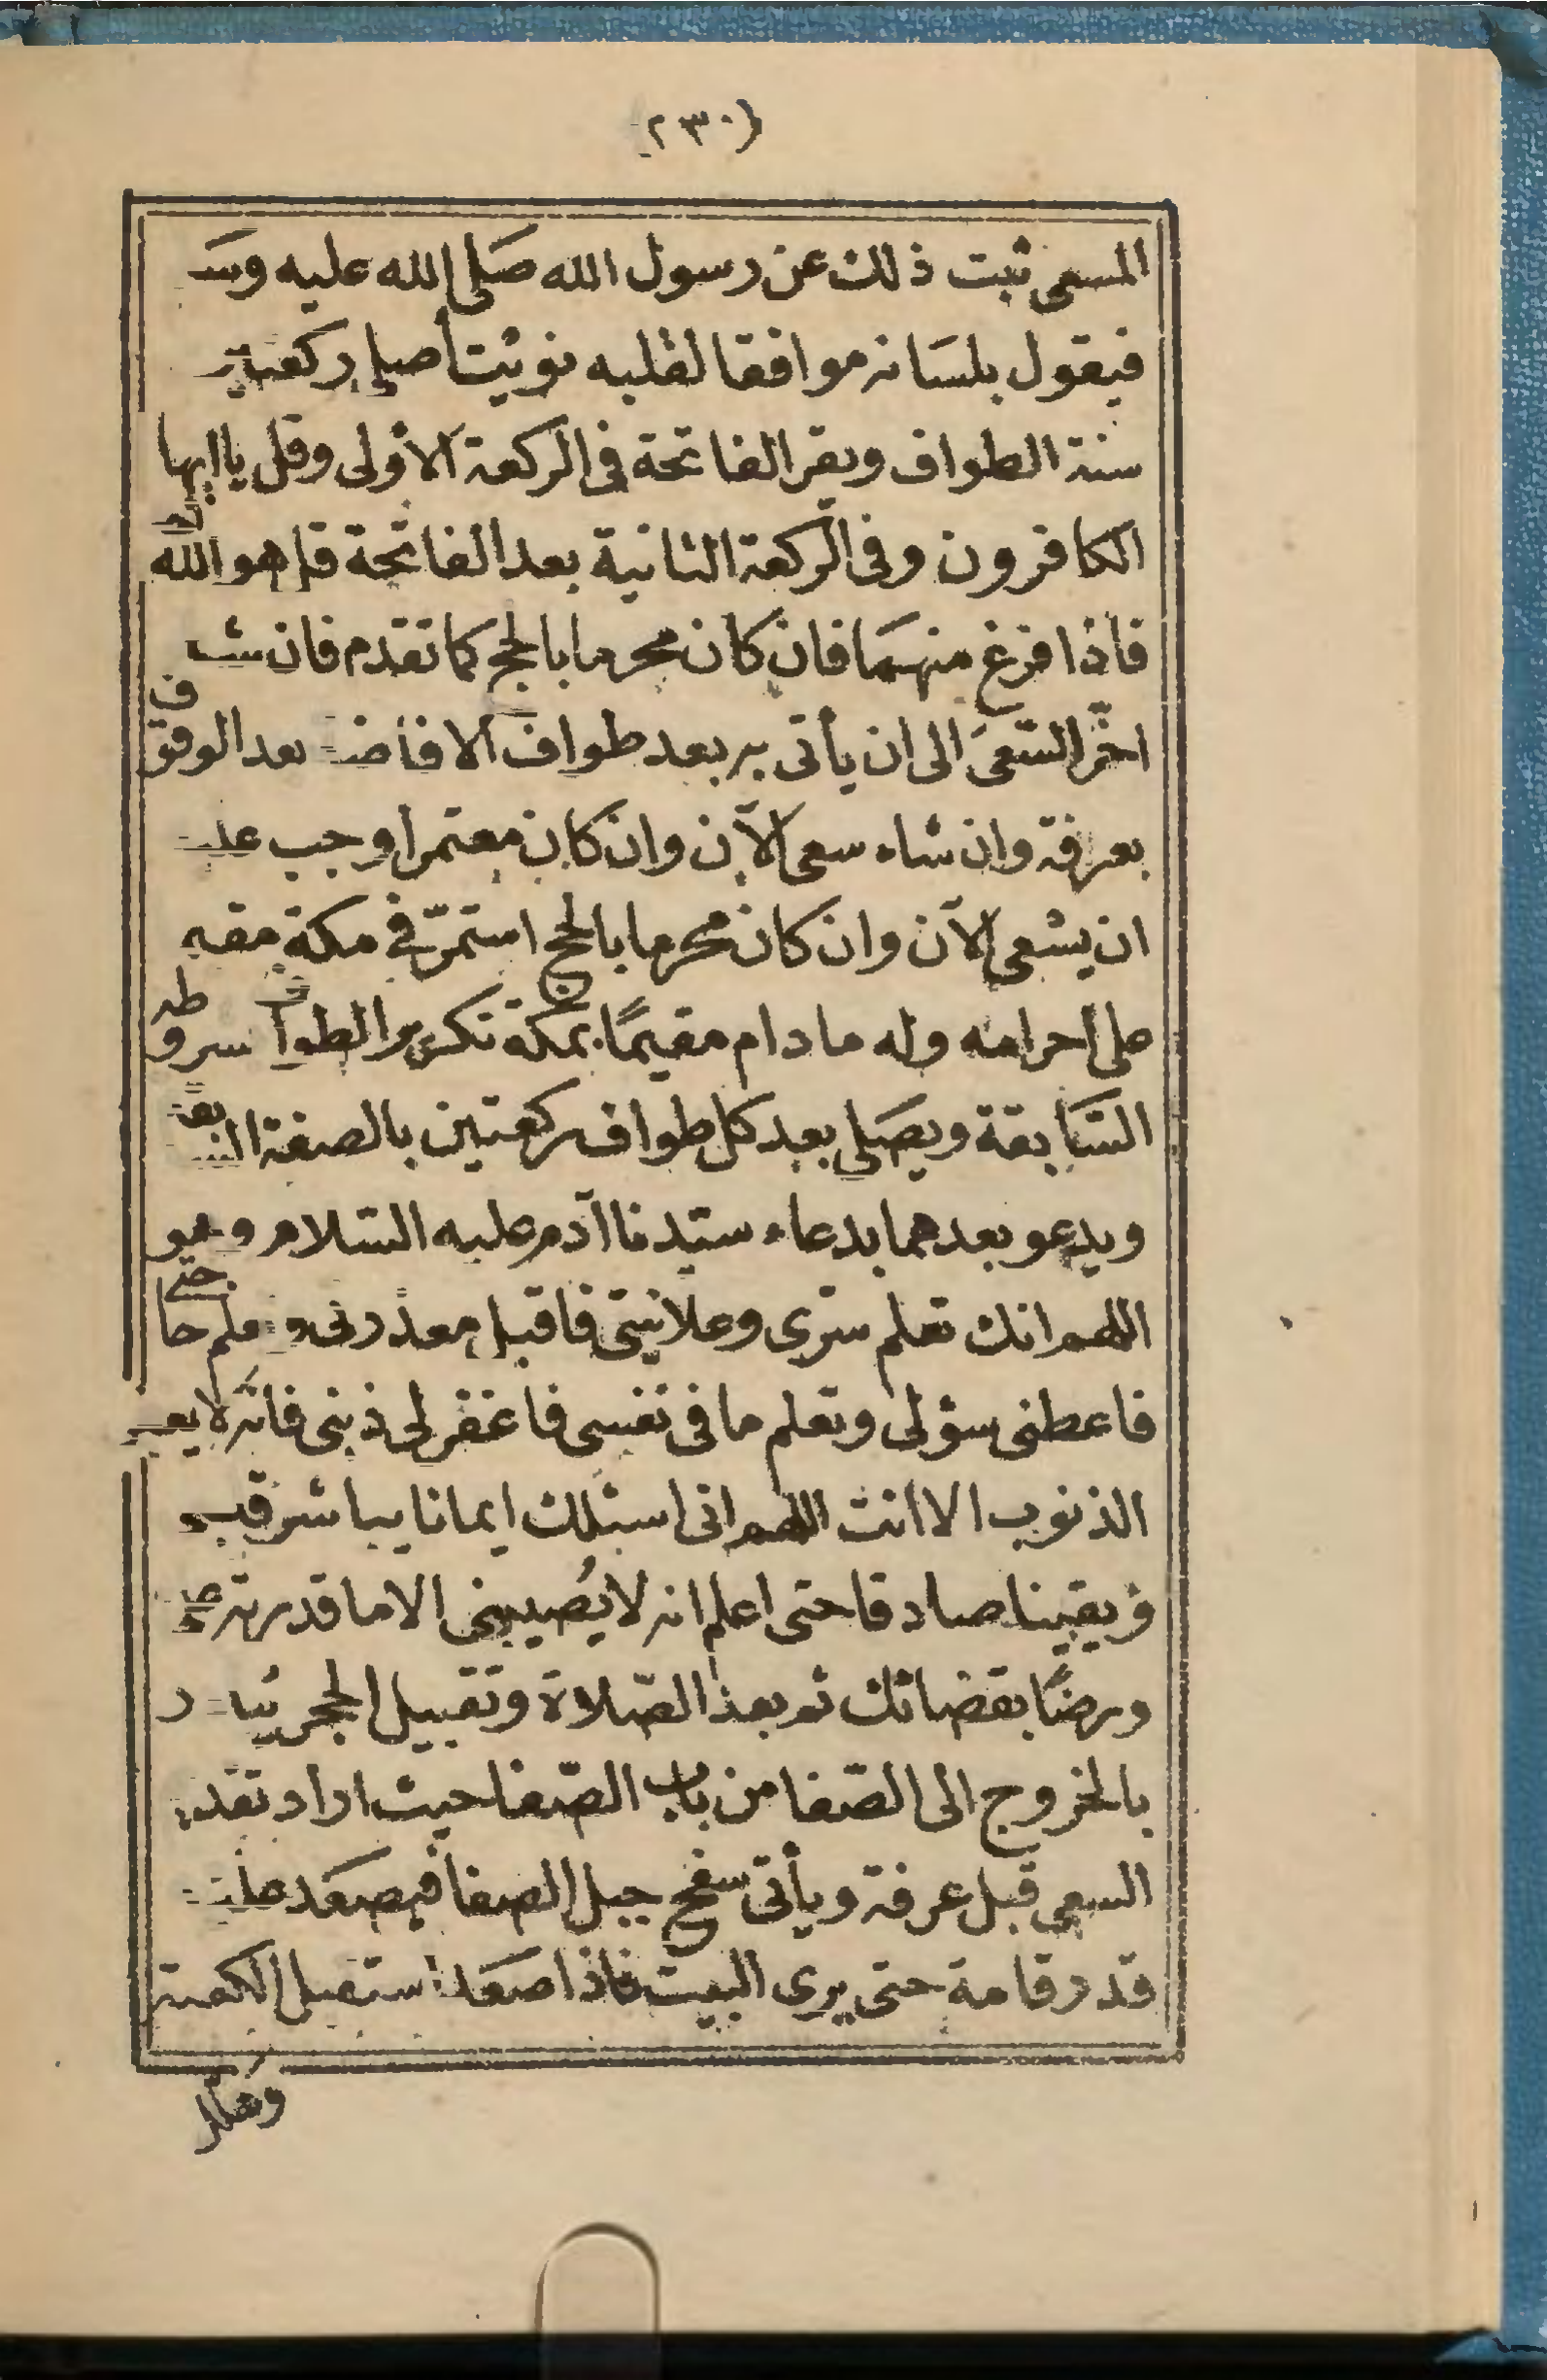 (٢٣٠)
المسعى ثبت ذلك عن رسول الله صَلى الله عليه وسَـ
فيقول بلسَانه موافقا لقلبه نويت أصلى ركعتين
سنة الطواف ويقرا الفاتحة فى الركعة الأولى وقل يا ايها
الكافرون وفى الركعة الثانية بعد الفاتحة قل هو الله
فاذا فرغ منهمَا فان كان محرما بالحج كما تقدم فان شـ
اخّر السّعىَ الى ان يأتى به بعد طواف الافاضة بعد الوقوف
بعرفة وان شاء سعى الآن وان كان معتمرا وجب عليه
ان يسْعى الآن وان كان محرما بالحج استمرّ فى مكة مقيـ
على احرامه وله ما دام مقيمًا بمكة تكرير الطواف بشروطه
السَّابقة ويصَلى بعد كل طواف ركعتين بالصفة السابقة
ويدعو بعدهما بدعاء سيّدنا آدم عليه السّلام وهو
اللهم انك تعلم سرّى وعلانيتى فاقبل معذرتى وتعلم حاجتى
فاعطنى سؤلى وتعلم ما فى نفسى فاغفر لى ذنبى فانّه لا يغـ
الذنوب الا انت اللهم انى اسئلك ايمانا يباشر قلبى
ويقينا صادقا حتى اعلم انه لا يُصيبنى الا ما قدرته
ورضًا بقضائك ثم بعد الصّلاة وتقبيل الحجر يبادر
بالخروج الى الصّفا من باب الصّفا حيث اراد تقديم
السعى قبل عرفة ويأتى سفح جبل الصفا فيصعَد عليه
قدر قامة حتى يرى البيت فاذا صعَد استقبل الكعبة